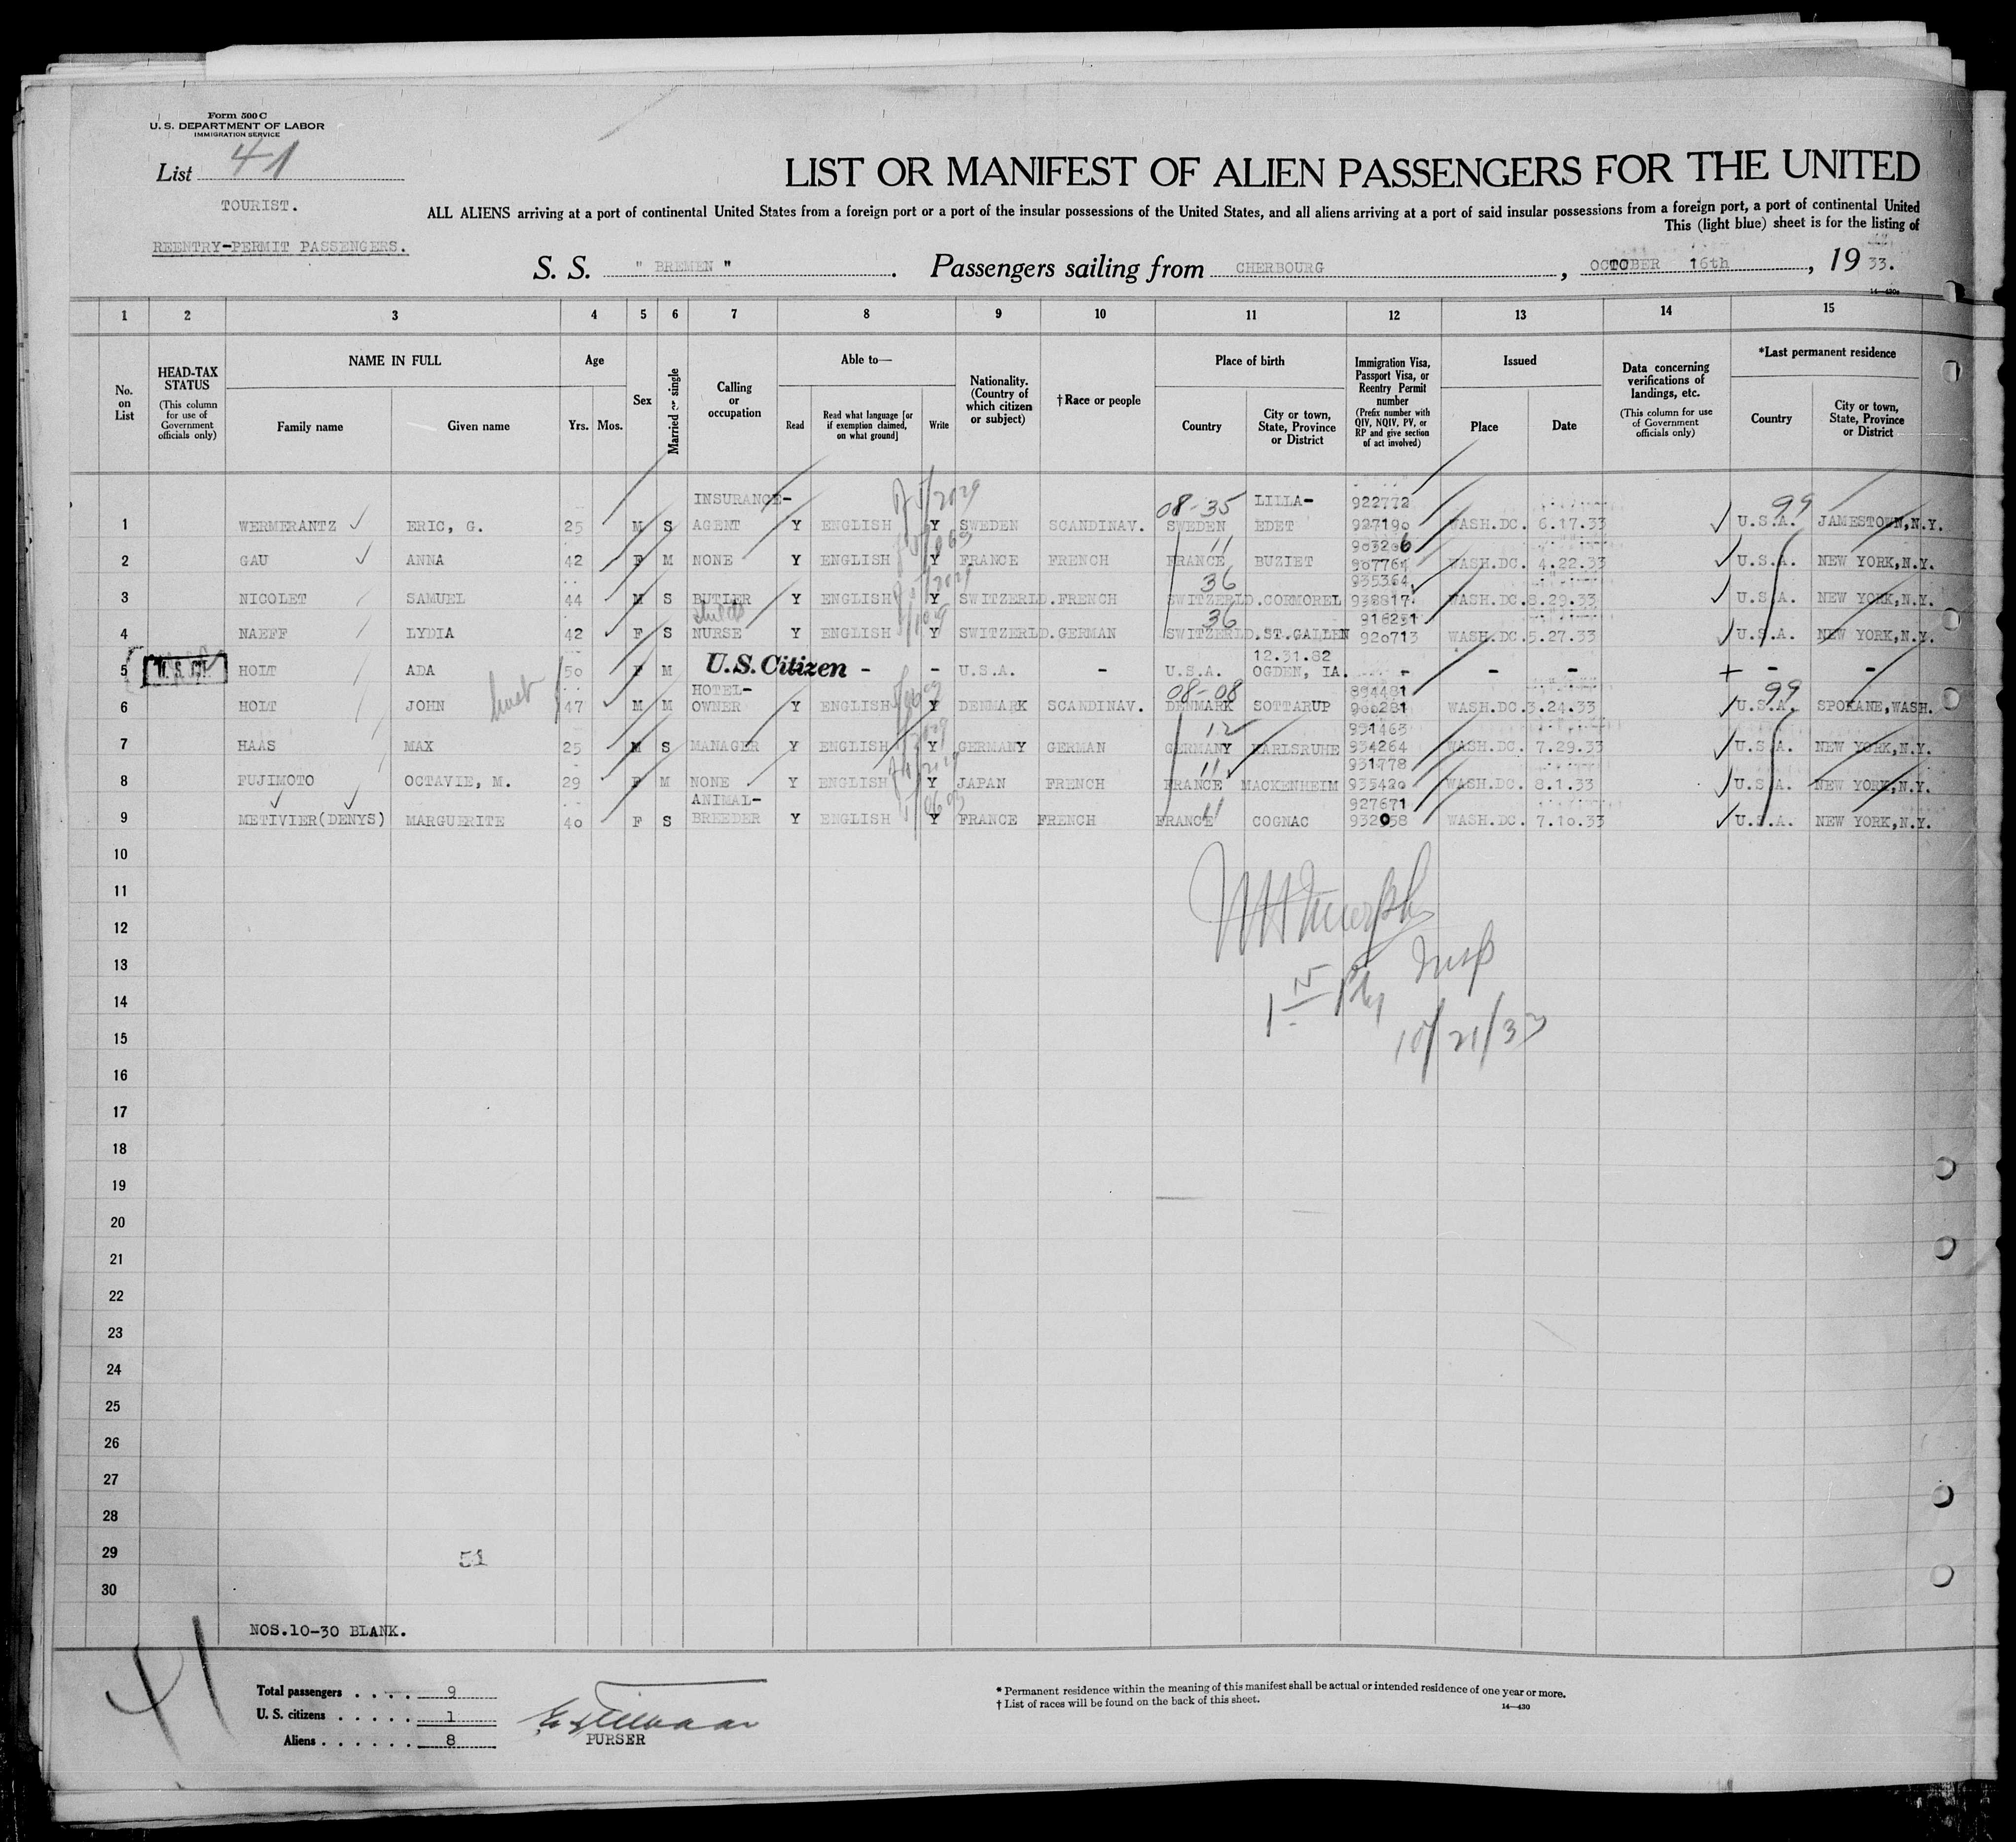 Form 500 C
U. S. DEPARTMENT OF LABOR
IMMIGRATION SERVICE
List 41
TOURIST.
REENTRY-PERMIT PASSENGERS.
LIST OR MANIFEST OF ALIEN PASSENGERS FOR THE UNITED
ALL ALIENS arriving at a port of continental United States from a foreign port or a port of the insular possessions of the United States, and all aliens arriving at a port of said insular possessions from a foreign port, a port of continental United
This (light blue) sheet is for the listing of
S. S. " BREMEN " . Passengers sailing from CHERBOURG , OCTOBER 16th , 19 33.
14—430a
1 2 3 4 5 6 7 8 9 10 11 12 13 14 15
No. on List
HEAD-TAX STATUS (This column for use of Government officials only)
NAME IN FULL
Family name Given name
Age
Yrs. Mos.
Sex
Married or single
Calling or occupation
Able to—
Read
Read what language [or if exemption claimed, on what ground]
Write
Nationality. (Country of which citizen or subject)
†Race or people
Place of birth
Country
City or town, State, Province or District
Immigration Visa, Passport Visa, or Reentry Permit number (Prefix number with QIV, NQIV, PV, or RP and give section of act involved)
Issued
Place Date
Data concerning verifications of landings, etc. (This column for use of Government officials only)
*Last permanent residence
Country
City or town, State, Province or District
INSURANCE- 08-35 LILLA- 922772 99
1 WERMERANTZ ERIC, G. 25 M S AGENT Y ENGLISH Y SWEDEN SCANDINAV. SWEDEN EDET 927190 WASH.DC. 6.17.33 U.S.A. JAMESTOWN,N.Y.
11 903206
2 GAU ANNA 42 F M NONE Y ENGLISH Y FRANCE FRENCH FRANCE BUZIET 907764 WASH.DC. 4.22.33 U.S.A. NEW YORK,N.Y.
36 935364
3 NICOLET SAMUEL 44 M S BUTLER Y ENGLISH Y SWITZERLD. FRENCH SWITZERLD. CORMOREL 938817 WASH.DC. 8.29.33 U.S.A. NEW YORK,N.Y.
child 36 916231
4 NAEFF LYDIA 42 F S NURSE Y ENGLISH Y SWITZERLD. GERMAN SWITZERLD. ST.GALLEN 920713 WASH.DC. 5.27.33 U.S.A. NEW YORK,N.Y.
12.31.82
5 U.S. CIT. HOLT ADA 50 F M U.S. Citizen - - U.S.A. - U.S.A. OGDEN, IA. - - - - -
HOTEL- 08-08 894481 99
6 HOLT JOHN 47 M M OWNER Y ENGLISH Y DENMARK SCANDINAV. DENMARK SOTTARUP 900281 WASH.DC. 3.24.33 U.S.A. SPOKANE,WASH.
12 931463
7 HAAS MAX 25 M S MANAGER Y ENGLISH Y GERMANY GERMAN GERMANY KARLSRUHE 934264 WASH.DC. 7.29.33 U.S.A. NEW YORK,N.Y.
11 931778
8 FUJIMOTO OCTAVIE, M. 29 F M NONE Y ENGLISH Y JAPAN FRENCH FRANCE MACKENHEIM 935420 WASH.DC. 8.1.33 U.S.A. NEW YORK,N.Y.
ANIMAL- 11 927671
9 METIVIER(DENYS) MARGUERITE 40 F S BREEDER Y ENGLISH Y FRANCE FRENCH FRANCE COGNAC 932058 WASH.DC. 7.10.33 U.S.A. NEW YORK,N.Y.
10
11
12
13
14
15
16
17
18
19
20
21
22
23
24
25
26
27
28
29
30
Insp
10/21/33
51
NOS.10-30 BLANK.
41
Total passengers . . . . 9
U. S. citizens . . . . . 1
Aliens . . . . . . 8
PURSER
* Permanent residence within the meaning of this manifest shall be actual or intended residence of one year or more.
† List of races will be found on the back of this sheet.
14—430